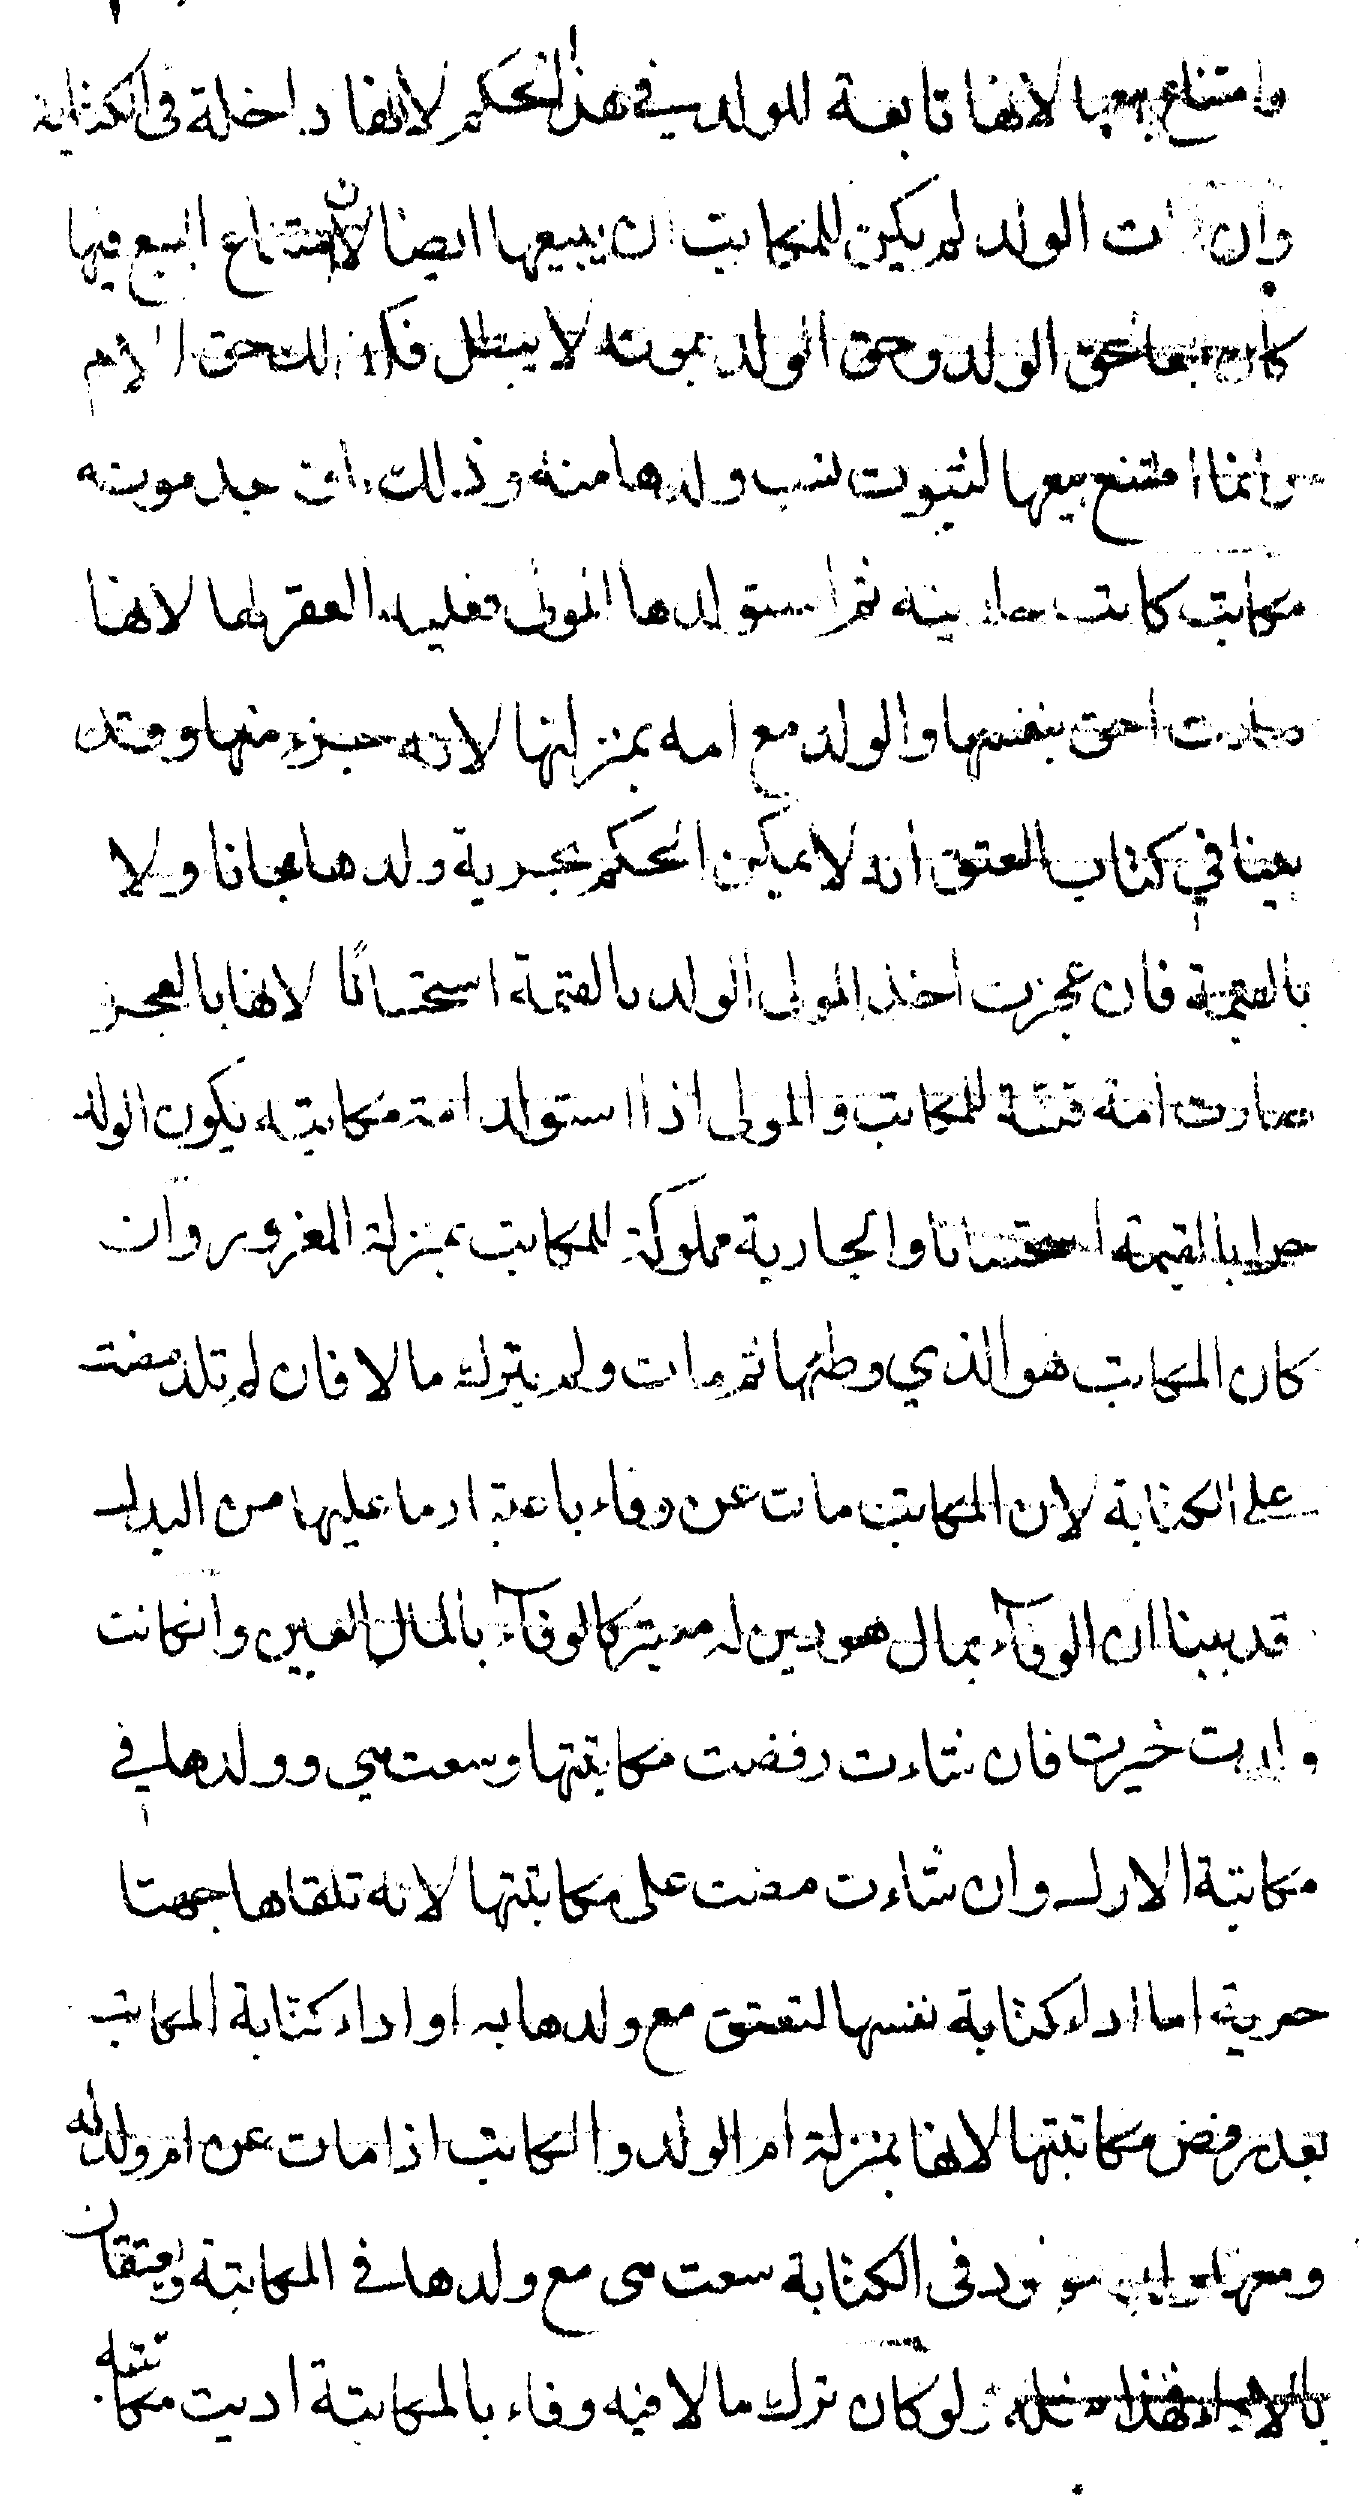 وامتناع بيعها لانها تابعة للولد في هذا الحكم لا انها داخلة فى الكتابة
وان مات الولد لم يكن للمكاتب ان يبيعها ايضا لان امتناع البيع فيها
كان تبعا لحق الولد وحق الولد بموته لا يبطل فكذلك حق الام
وانما امتنع بيعها لثبوت نسب ولدها منه وذلك باق بعد موته
مكاتب كاتب جاريته ثم استولدها المولى فعليه العقر لها لانها
صارت احق بنفسها والولد مع امه بمنزلتها لانه جزء منها وقد
بينا في كتاب العتق انه لا يمكن الحكم بحرية ولدها مجانا ولا
بالقيمة فان عجزت اخذ المولى الولد بالقيمة استحسانًا لانها بالعجز
صارت امة قنة للمكاتب والمولى اذا استولد امة مكاتبه يكون الولد
حرا بالقيمة استحسانا والجارية مملوكة للمكاتب بمنزلة المغرور وان
كان المكاتب هو الذي وطئها ثم مات ولم يترك مالا فان لم تلد مضت
على الكتابة لان المكاتب مات عن وفاء باعتبار ما عليها من البدل
قد بينا ان الوفاء بمال هو دين له معتبر كالوفاء بالمال العين وانكانت
ولدت خيرت فان شاءت رفضت مكاتبتها وسعت هي وولدها في
مكاتبة الاول وان شاءت مضت على مكاتبتها لانه تلقاها جهتا
حرية اما اداء كتابة نفسها لتعتق مع ولدها به او اداء كتابة المكاتب
بعد رفض مكاتبتها لانها بمنزلة ام الولد والمكاتب اذا مات عن ام ولد له
ومعها ولد مولود فى الكتابة سعت هى مع ولدها في المكاتبة ويعتقان
بالاداء فهذا مثله ولو كان ترك مالا فيه وفاء بالمكاتبة اديت مكاتبته